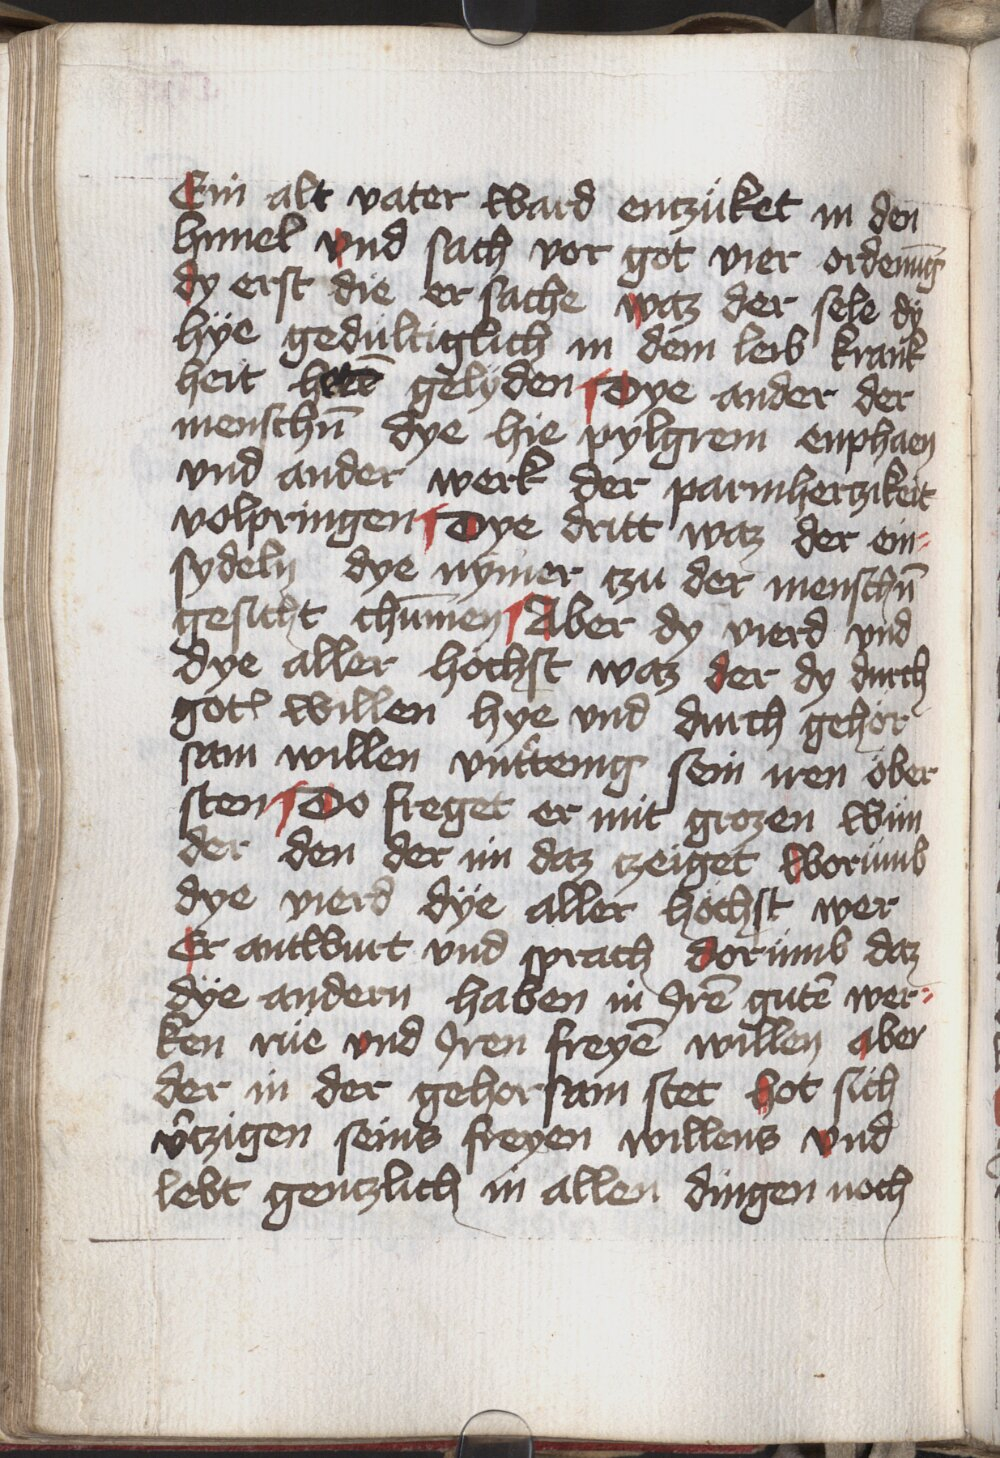 Ein alt vater ward entzüket in den
himel vnd sach vor got vier ordenūg
dy erst die er sache waz der sele dÿ
hÿe gedultiglich in dem leib krank
heit hetē gelÿden Dye ander der
menschn̄ dye hie pylgrem enphaen
vnd ander werk der parmhertzikeit
volpringen Dye dritt waz der ein-
sydeln dye nymer tzu der menschn̄
gesicht chūmen Aber dy vierd vnd
dye aller höchst waz der dy durch
gotz willen hye vnd durch gehor
sam willen vnttenig sein iren öber
sten Do freget er mit grozen wun
der den der im daz tzeiget Worümb
dye vierd dÿe aller höchst wer
Er antwurt vnd sprach dorümb daz
dÿe andern haben in Irē gutē wer-
ken rüe vnd Iren freyē willen aber
der in der gehorsam stet hot sich
v̄tzigen seins freyen willens vnd
lebt gentzlich in allen dingen noch